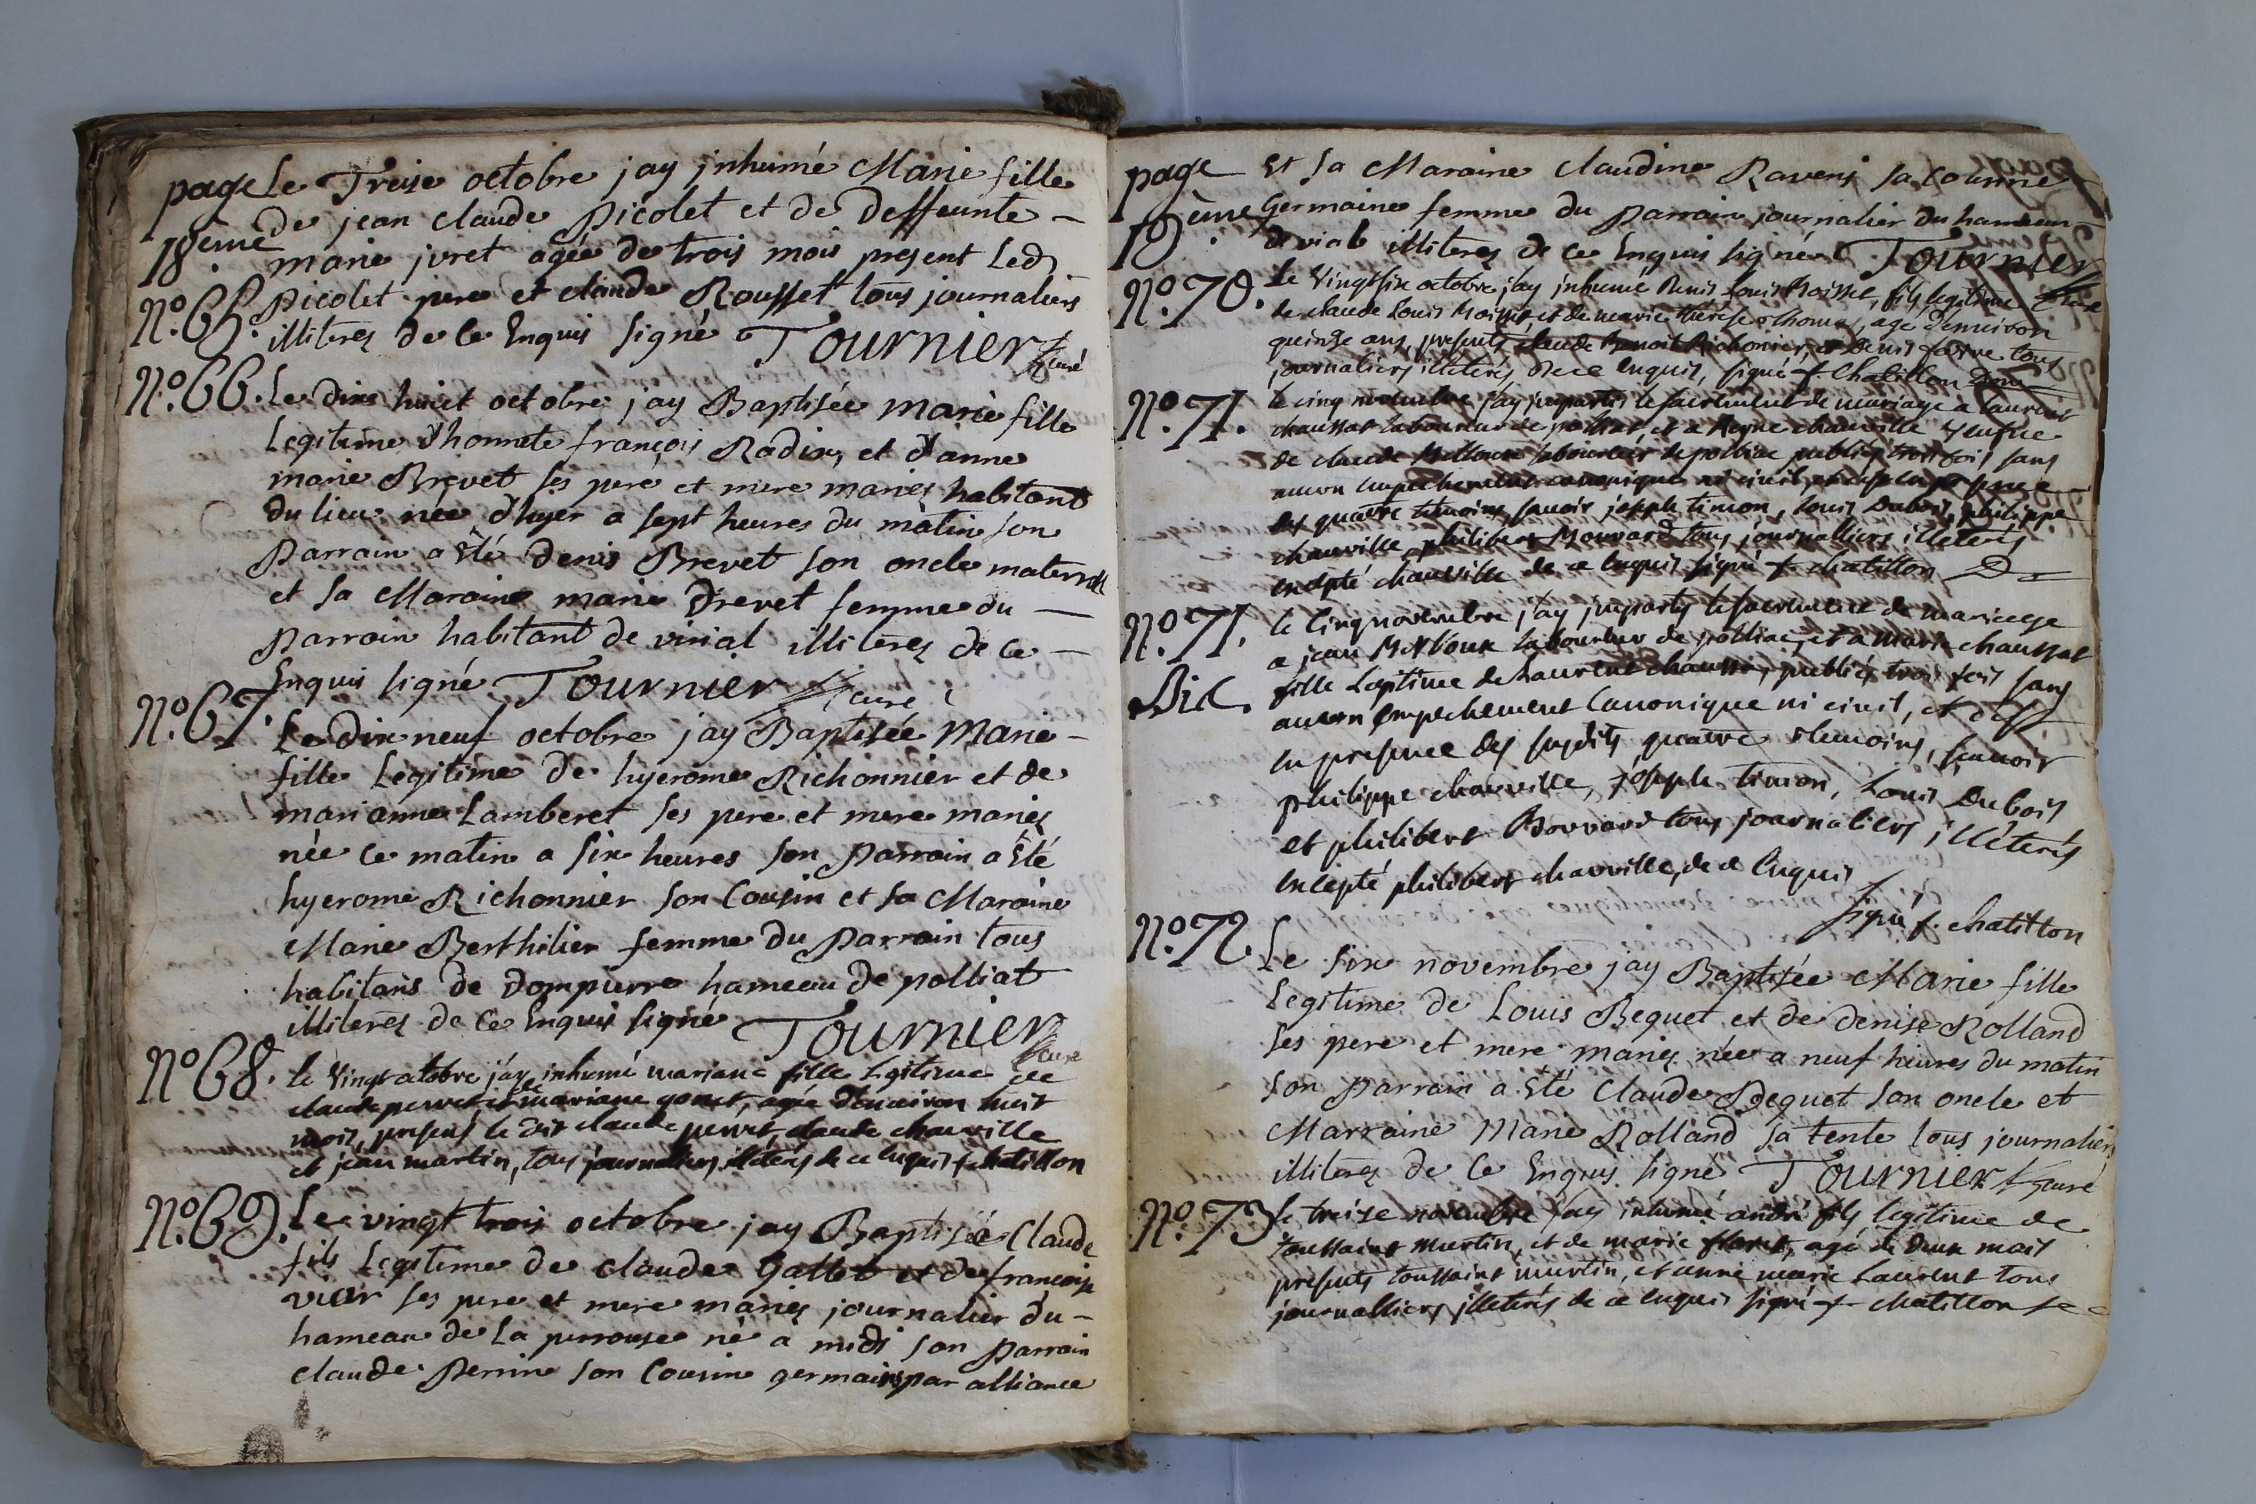 page Le Treise octobre jay jnhumé Marie fille
18eme de jean claude Picolet et de Deffeunte
marie juret agée de trois mois present Led
No. 65. Picolet pere et claude Rousset tous journaliers
illiterez de ce Enquis signé Tournier curé
No. 66. Le dix huict octobre jay Baptisée marie fille
Legitime d'honnete françois Radix, et d'anne
marie Brevet ses pere et mere mariez habitant
du lieu née d'hyer a sept heures du matin son
Parrain a Eté denis Brevet son oncle maternel
et sa Maraine marie Drevet femme du
Parrain habitant de virial illiterez de ce
Enquis signé Tournier curé
No. 67. Le dix neuf octobre jay Baptisée Marie
fille Legitime de hyerome Richonnier et de
marianne Lamberet ses pere et mere mariez
née ce matin a six heures son Parrain a Eté
hyerome Richonnier son Cousin et sa Maraine
Marie Berthilier femme du Parrain tous
habitans de Dompierre hameau de polliat
illiterez de ce Enquis signé Tournier curé
No 68. le Vingt octobre j'ay inhumé mariane fille legitime de
claude perret et de mariane gonet, agée d'environ huit
mois, presens le dit claude perret, claude chauville
et jean martin, tous journaliers illeterés de ce enquis f. chatillon
No. 69. Le vingt trois octobre jay Baptisée Claude
fils Legitime de claude Gallet et de françoise
viair ses pere et mere mariez journalier du
hameau de La perrouse né a midi son Parrain
claude Perrin son Cousin germain par alliance
page Et sa Maraine claudine Ravent sa Cousine
19eme. Germaine femme du Parrain journalier du hameau
de viale illiterez de ce Enquis signé Tournier curé
No. 70. Le Vingt six octobre j'ay inhumé Denis Louis Moissel, fils legitime
de claude Louis Moissel, et de marie therese thomas, agé d'environ
quinze ans, presents claude Benoit Richonier, et Denis favre tous
journaliers illeterés De ce enquis, signé f. Chatillon
No. 71. le cinq novembre j'ay jmparti le sacrement de mariage a laurent
chaussat laboureur de polliat, et a Reyne chauville veufve
de claude Melloux laboureur de polliat publiés trois fois sans
aucun empechement canonique ni civil, et ce en presence
des quatre temoins, savoir joseph timon, Louis Dubois, philippe
chauville, philibert Bouvard tous journalliers illeterés
excepté chauville de ce enquis signé f. chatillon
No. 71. le cinq novembre j'ay jmparty le sacrement de mariage
a jean Melloux laboureur de polliat, et a marie chaussat
Bis. fille legitime de Laurent chaussat, publiés trois fois sans
aucun empechement Canonique ni civil, et ce
en presence des susdits quatre temoins, scavoir
philippe chauville, joseph timon, Louis Dubois
et philibert Bouvard tous journaliers illéterés
excepté philibert chauville, de ce enquis
signé f. chatillon
No. 72. Le six novembre jay Baptisée Marie fille
Legitime de Louis Bequet et de denise Rolland
ses pere et mere mariez née a neuf heures du matin
son Parrain a Eté Claude Bequet son oncle et
Marraine Marie Rolland sa tente tous journaliers
illiterez de ce Enquis signé Tournier curé
No. 73 le treize novembre j'ay inhumé andré fils legitime de
toussaint martin, et de marie floret, agé de deux mois
presents toussaint martin, et anne marie Laurent tous
journalliers illeterés de ce enquis signé f. chatillon